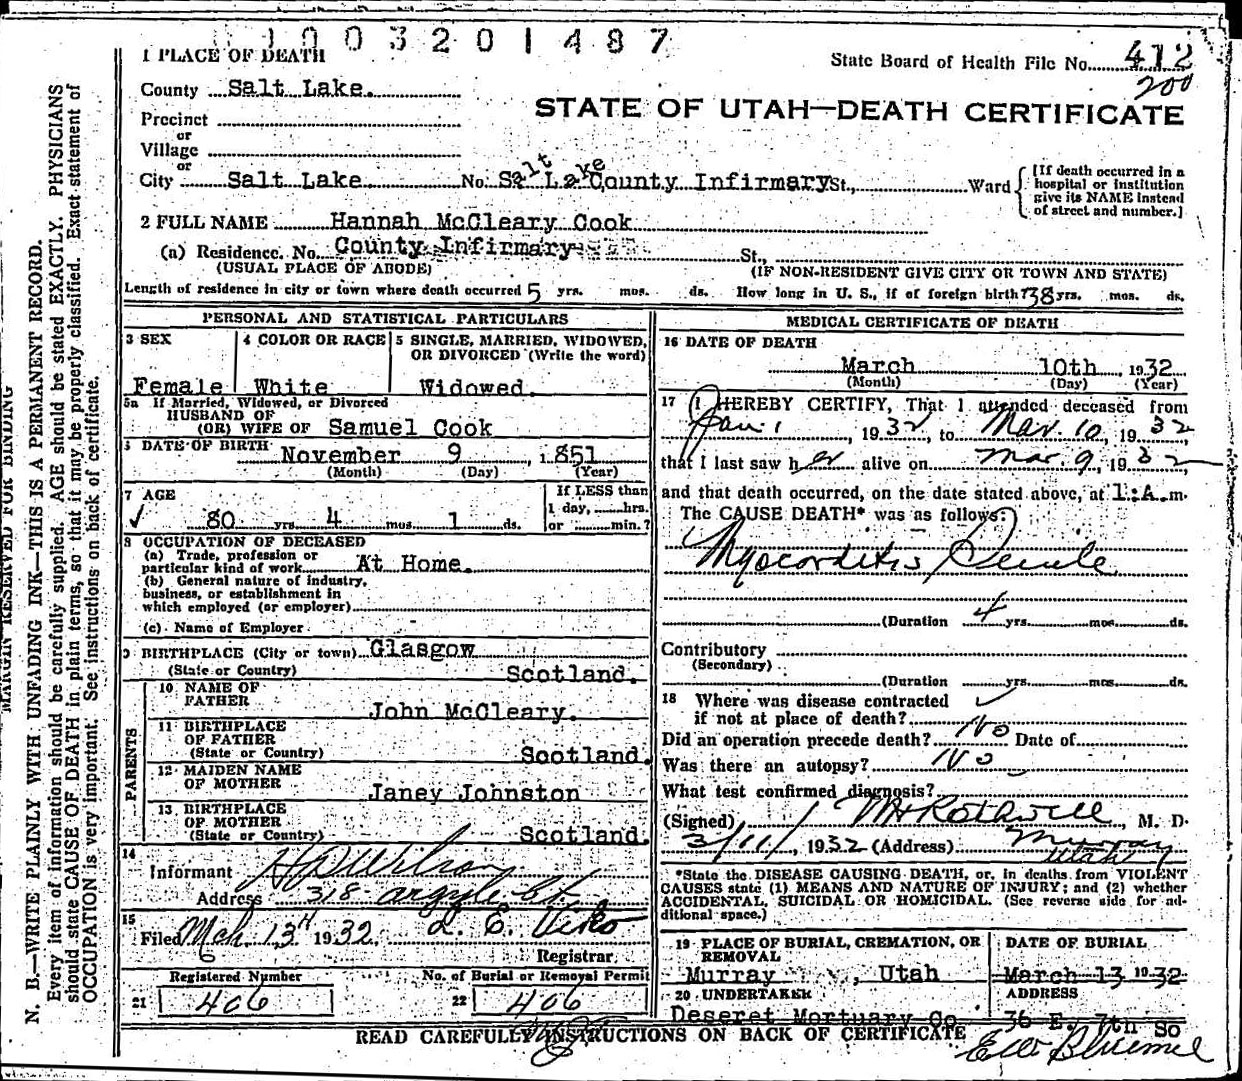 1003201487
1 PLACE OF DEATH
State Board of Health File No. 412
200
County Salt Lake.
STATE OF UTAH—DEATH CERTIFICATE
Precinct
or
Village
or
City Salt Lake No. Salt Lake County Infirmary St., Ward
[If death occurred in a
hospital or institution
give its NAME instead
of street and number.]
2 FULL NAME Hannah McCleary Cook
(a) Residence. No. County Infirmary St.,
(USUAL PLACE OF ABODE) (IF NON-RESIDENT GIVE CITY OR TOWN AND STATE)
Length of residence in city or town where death occurred 5 yrs. mos. ds. How long in U. S., if of foreign birth? 38 yrs. mos. ds.
PERSONAL AND STATISTICAL PARTICULARS
3 SEX
Female
4 COLOR OR RACE
White
5 SINGLE, MARRIED, WIDOWED,
OR DIVORCED (Write the word)
Widowed.
5a If Married, Widowed, or Divorced
HUSBAND OF
(OR) WIFE OF Samuel Cook
6 DATE OF BIRTH November 9 , 1851
(Month) (Day) (Year)
7 AGE
80 yrs 4 mos 1 ds.
If LESS than
1 day, hrs.
or min.?
8 OCCUPATION OF DECEASED
(a) Trade, profession or
particular kind of work At Home.
(b) General nature of industry,
business, or establishment in
which employed (or employer)
(c) Name of Employer
9 BIRTHPLACE (City or town) Glasgow
(State or Country) Scotland.
PARENTS
10 NAME OF
FATHER John McCleary.
11 BIRTHPLACE
OF FATHER
(State or Country) Scotland.
12 MAIDEN NAME
OF MOTHER Janey Johnston
13 BIRTHPLACE
OF MOTHER
(State or Country) Scotland.
14
Informant H D Wilson
Address 318 Argyle St.
15
Filed Mch 13th 1932.
Registrar.
Registered Number
21 406
No. of Burial or Removal Permit
22 406
MEDICAL CERTIFICATE OF DEATH
16 DATE OF DEATH
March 10th , 1932
(Month) (Day) (Year)
17 I HEREBY CERTIFY, That I attended deceased from
Jan. 1 , 1932, to Mar. 10, 1932,
that I last saw her alive on Mar. 9, 1932,
and that death occurred, on the date stated above, at 1:A.m.
The CAUSE DEATH* was as follows:
Myocorditis Senile
(Duration 4 yrs. mos. ds.
Contributory
(Secondary)
(Duration yrs. mos. ds.
18 Where was disease contracted
if not at place of death?
Did an operation precede death? No Date of
Was there an autopsy? No
What test confirmed diagnosis?
(Signed) Rothwell, M. D.
3/11/, 1932 (Address) Murray
Utah
*State the DISEASE CAUSING DEATH, or, in deaths from VIOLENT
CAUSES state (1) MEANS AND NATURE OF INJURY; and (2) whether
ACCIDENTAL, SUICIDAL OR HOMICIDAL. (See reverse side for ad-
ditional space.)
19 PLACE OF BURIAL, CREMATION, OR
REMOVAL
Murray , Utah
DATE OF BURIAL
March 13 1932
20 UNDERTAKER
Deseret Mortuary Co
ADDRESS
36 E. 7th So
READ CAREFULLY INSTRUCTIONS ON BACK OF CERTIFICATE
MARGIN RESERVED FOR BINDING
N. B.—WRITE PLAINLY WITH UNFADING INK—THIS IS A PERMANENT RECORD.
Every item of information should be carefully supplied. AGE should be stated EXACTLY. PHYSICIANS
should state CAUSE OF DEATH in plain terms, so that it may be properly classified. Exact statement of
OCCUPATION is very important. See instructions on back of certificate.